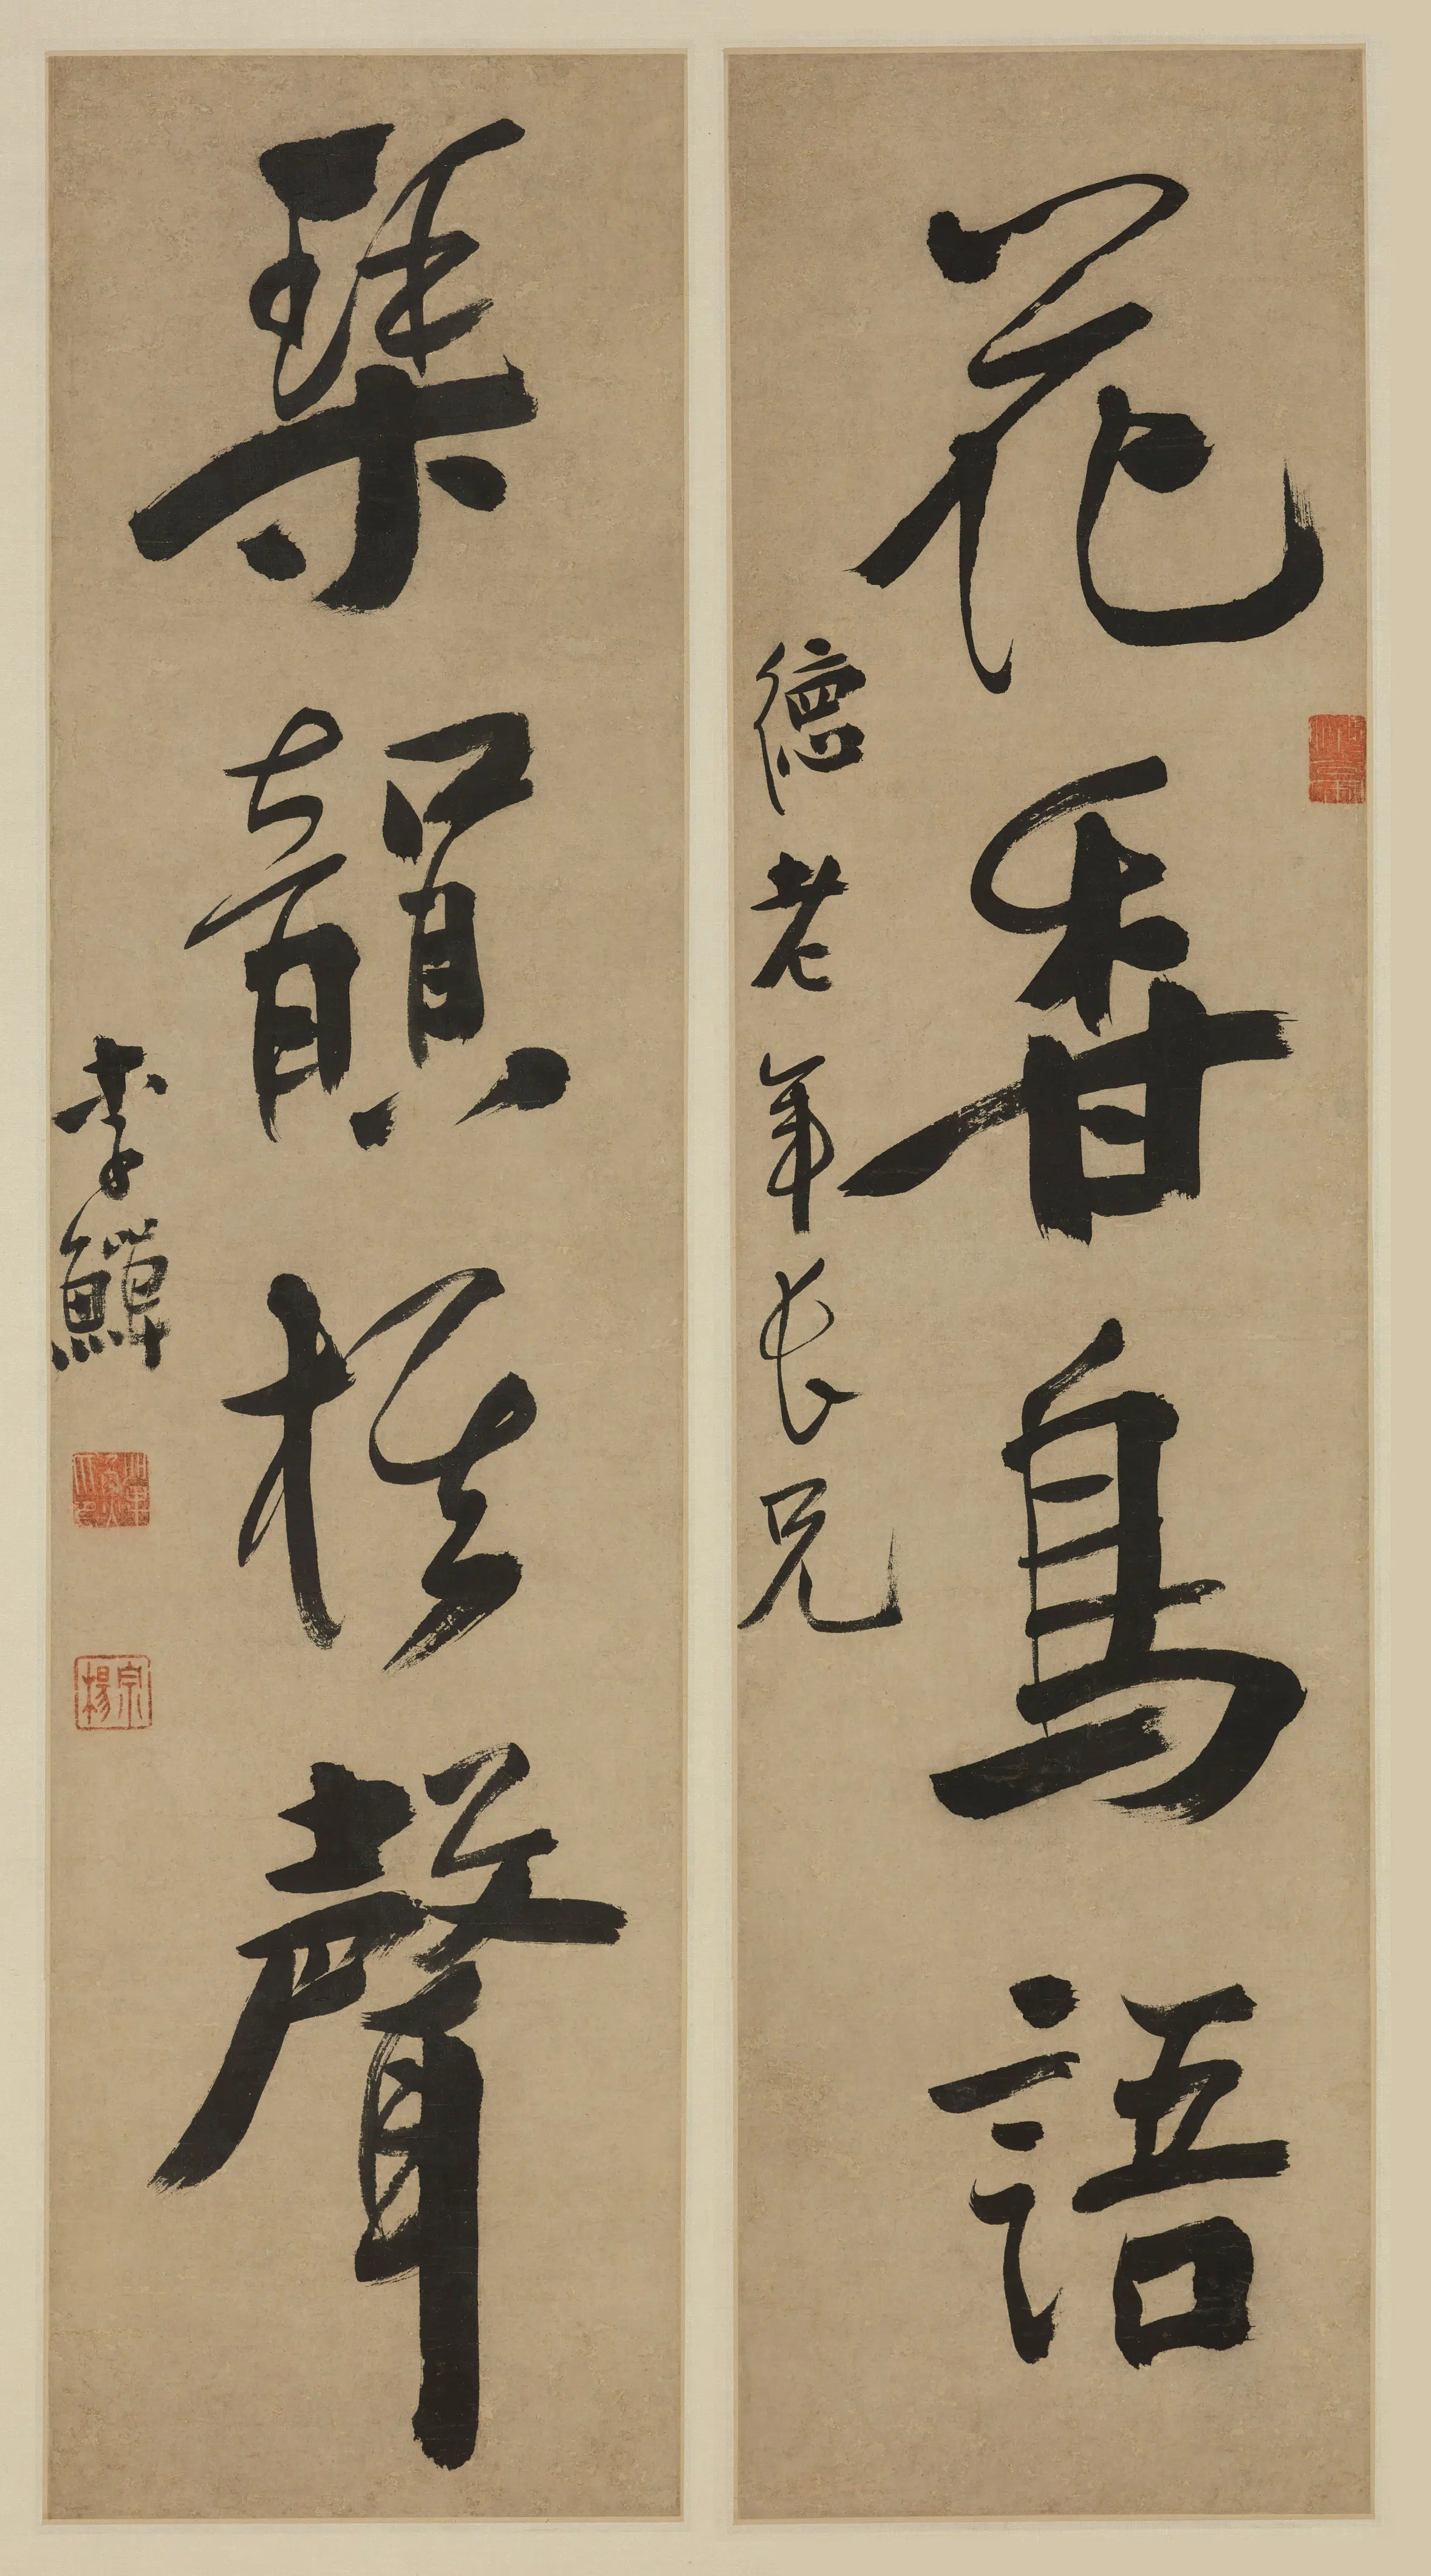 花香鳥語
德老年長兄
琴韻棋聲
李鱓
宗楊